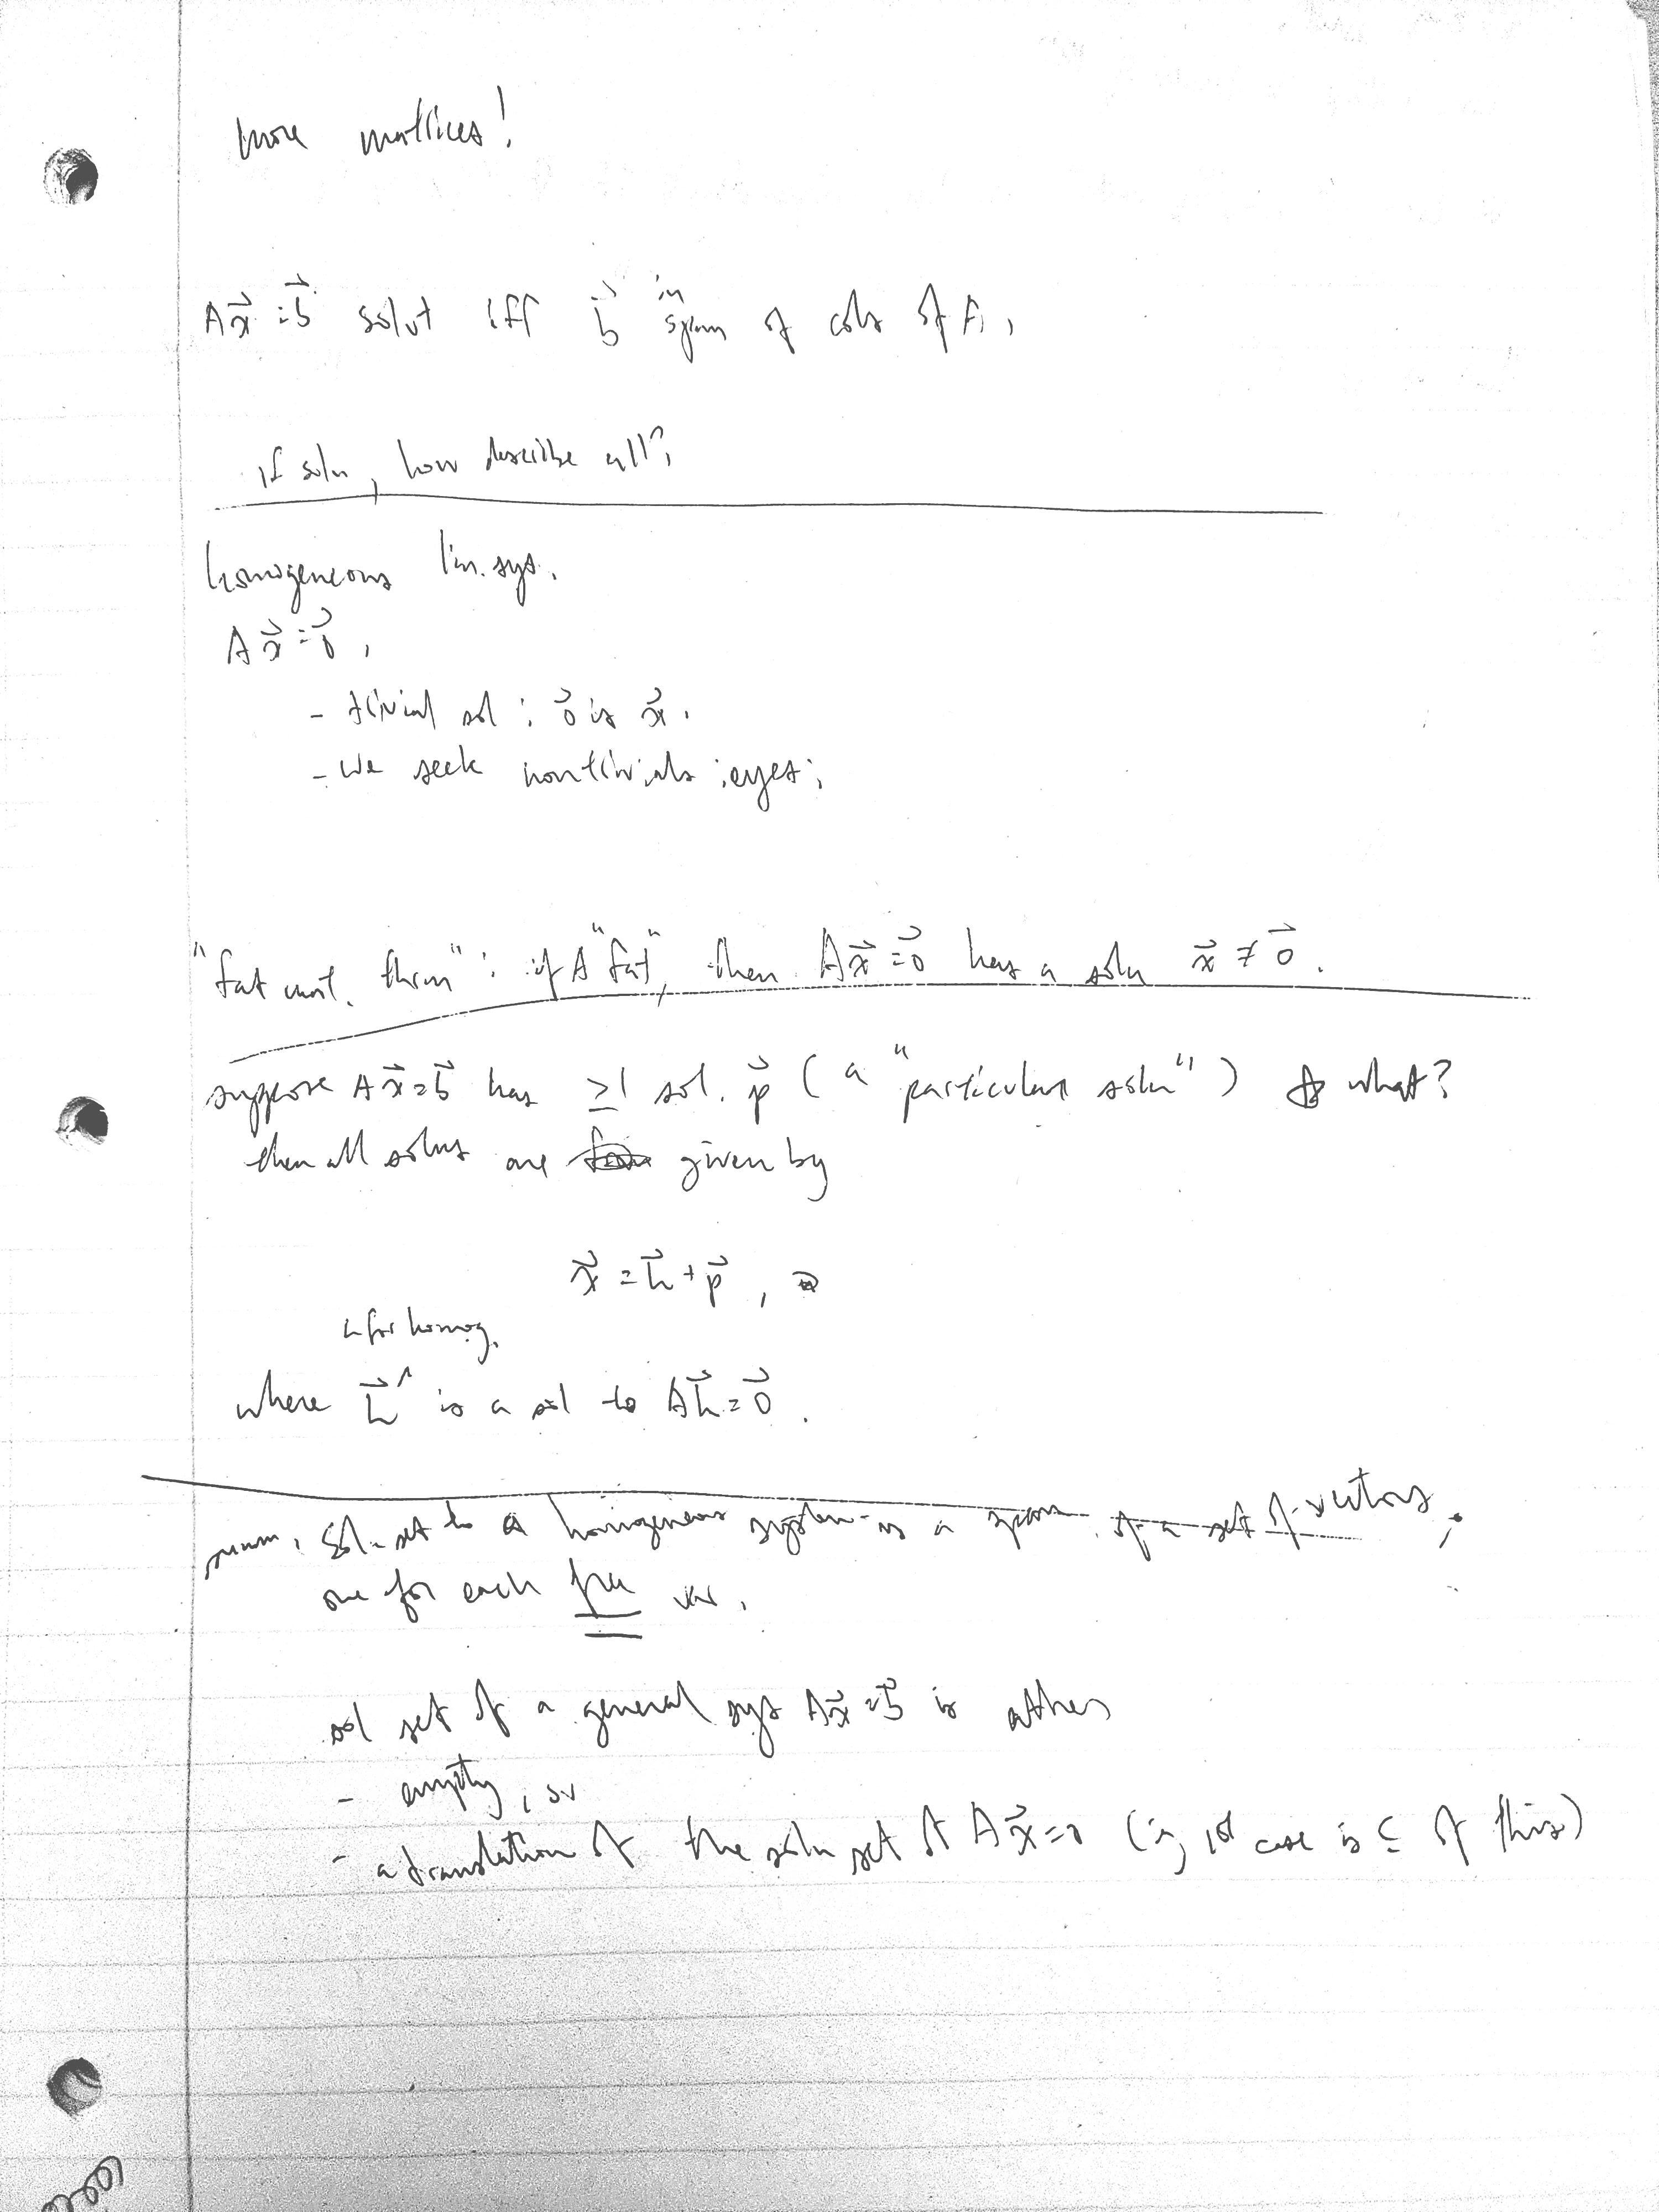 more matrices!
Ax⃗ = b⃗ solut iff b⃗ in span of cols of A.
if soln, how describe all?
homogeneous lin. sys.
Ax⃗ = 0⃗.
- trivial sol: 0⃗ is x⃗.
- we seek nontrivials :eyes:
"fat mat. thrm": if A "fat", then Ax⃗ = 0⃗ has a soln x⃗ ≠ 0⃗.
suppose Ax⃗ = b⃗ has ≥1 sol. p⃗ (a "particular soln") what?
then all solns are given by
x⃗ = h⃗ + p⃗,
h for homog.
where h⃗ ^ is a sol to Ah⃗ = 0⃗.
summ. Sol. set to a homogeneous system is a span of a set of vectors,
one for each free var.
sol set of a general sys Ax⃗ = b⃗ is either
- empty, or
- a translation of the soln set of Ax⃗ = 0 (1st case is ⊆ of this)